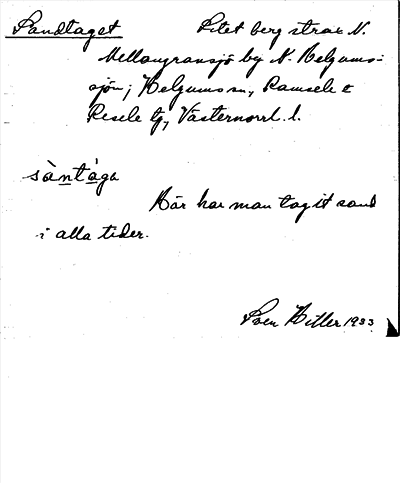 Sandtaget Litet berg strax N.
Mellangransjö by N. Helgums-
sjön; Helgums sn, Ramsele &
Resele tg, Västernorrl. l.
sàntága
Här har man tagit sand
i alla tider.
Sven Hitler 1933